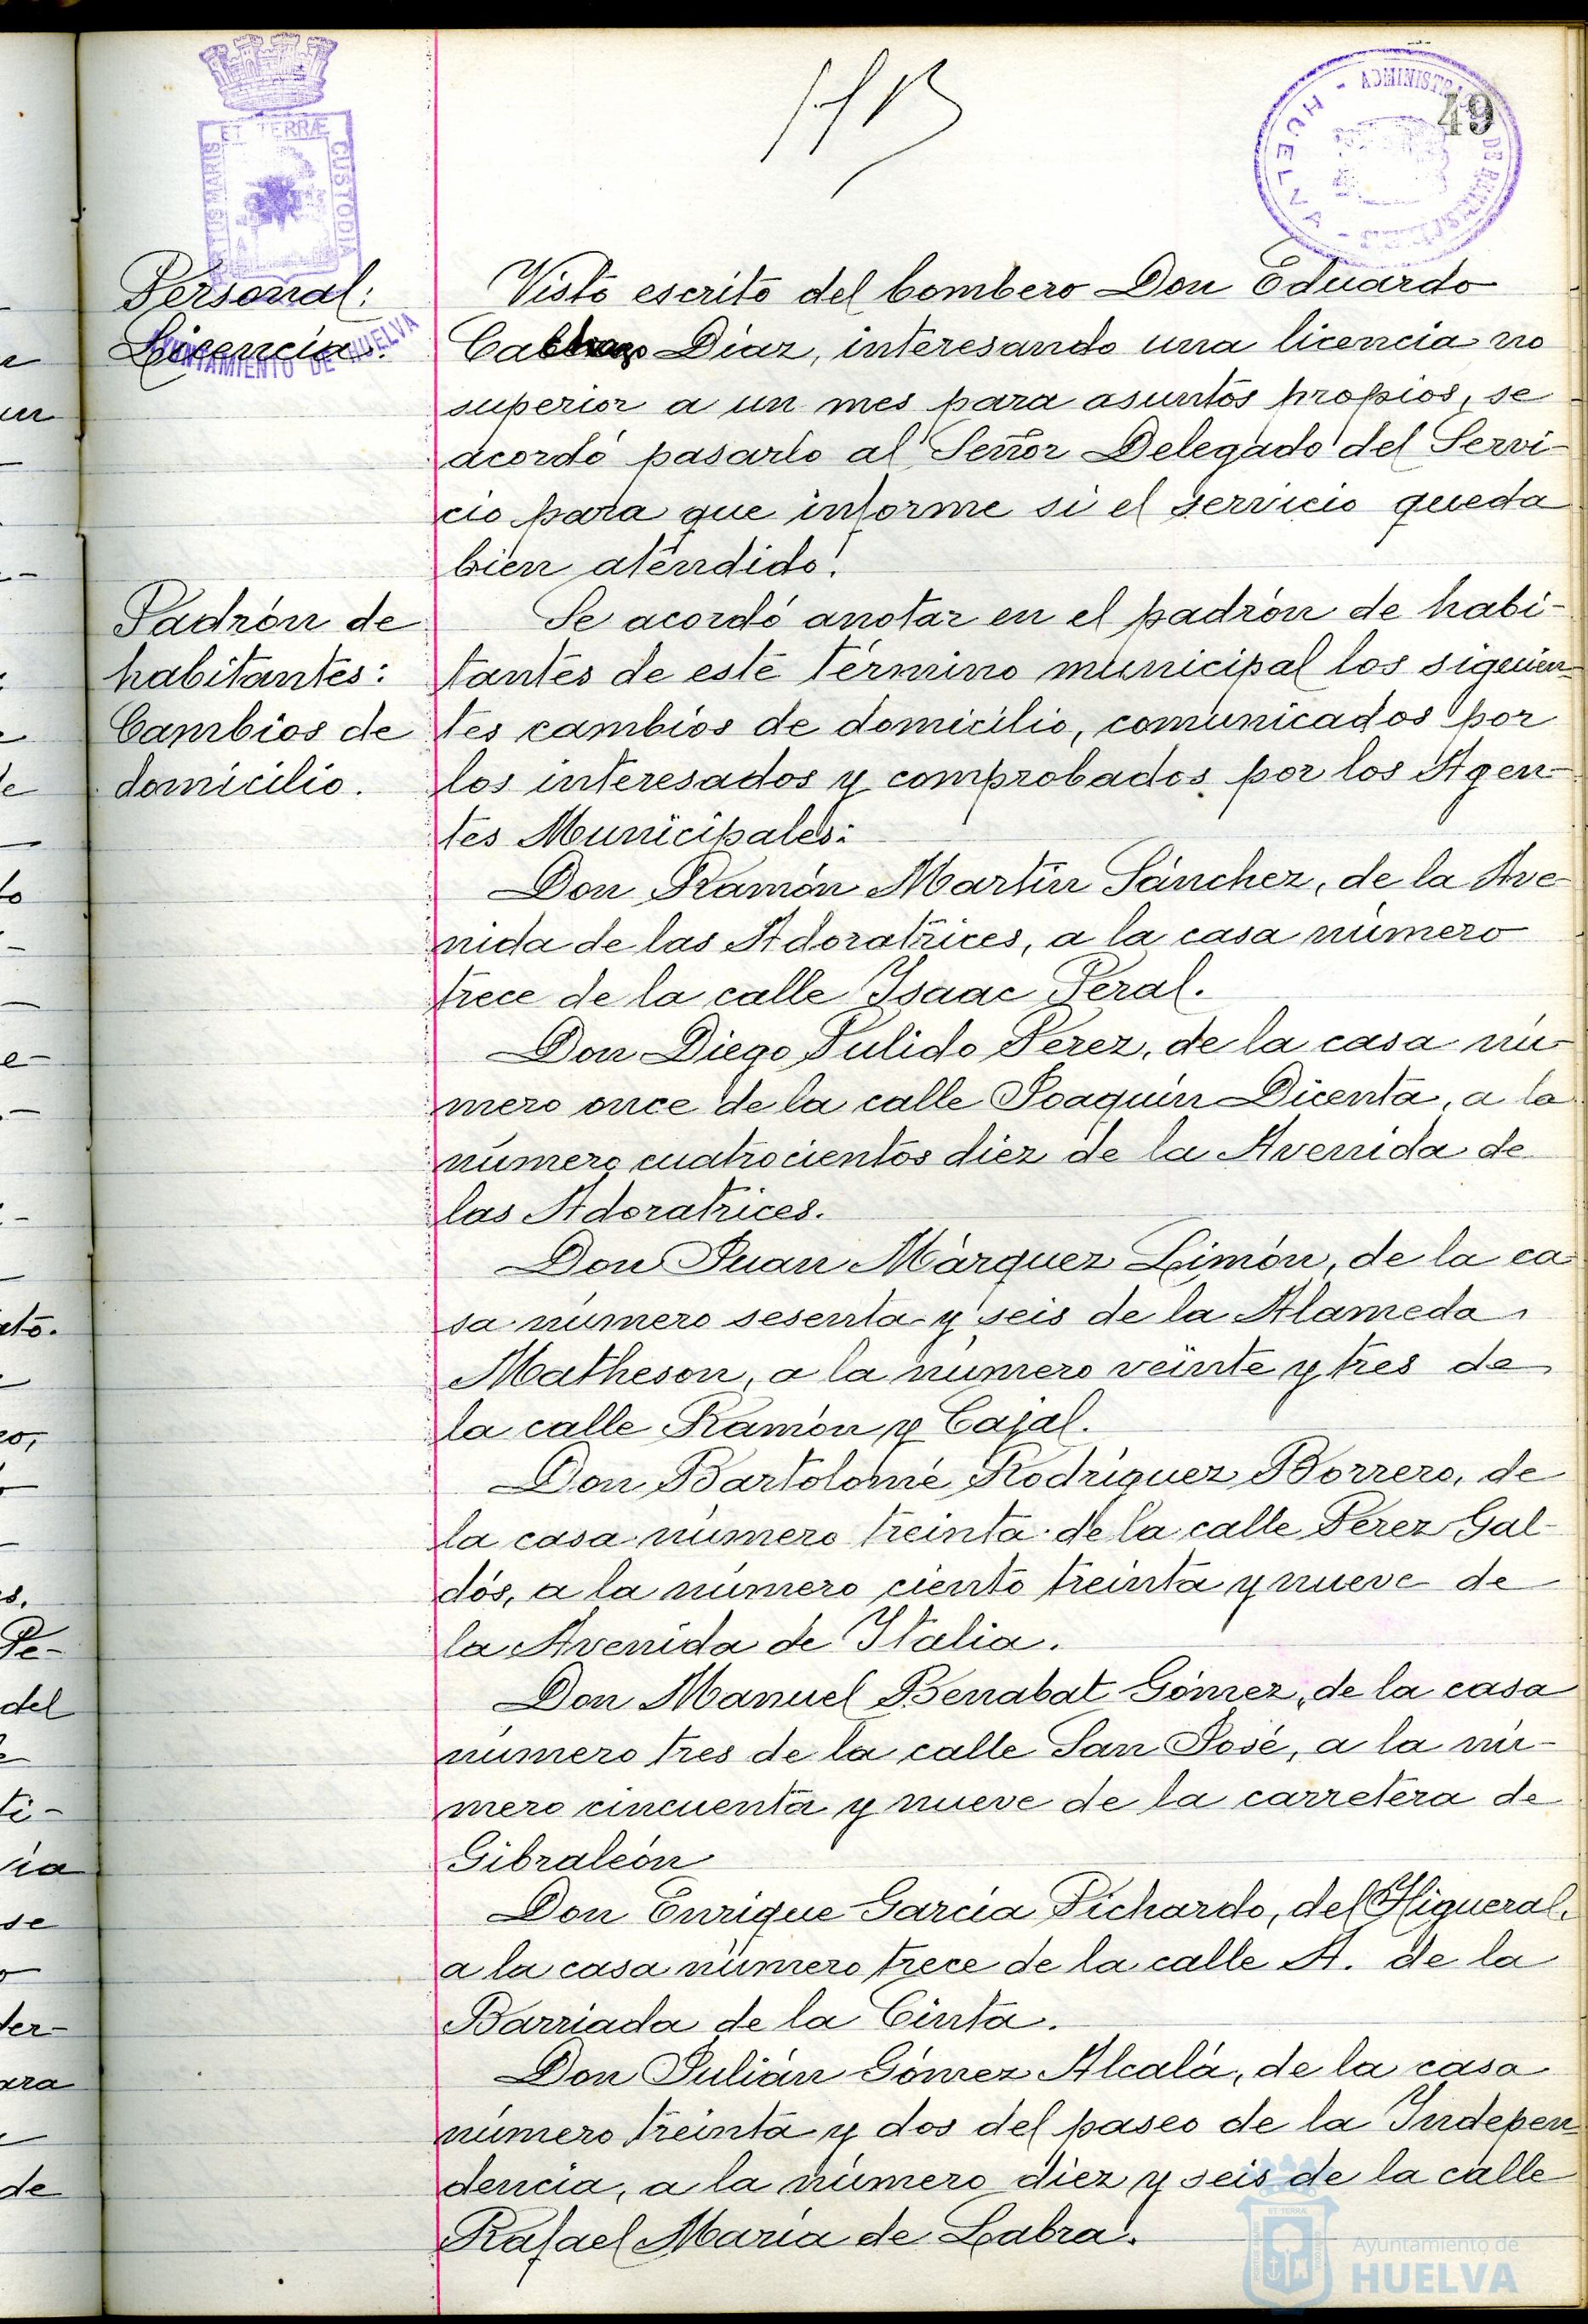 49
ET TERRÆ
CUSTODIA
MARIS
AYUNTAMIENTO DE HUELVA
HUELVA
Personal:
Licencia.
Visto escrito del bombero Don Eduardo
Díaz, interesando una licencia no
superior a un mes para asuntos propios, se
acordó pasarlo al Señor Delegado del Servi-
cio para que informe si el servicio queda
bien atendido.
Padrón de
habitantes:
Cambios de
domicilio.
Se acordó anotar en el padrón de habi-
tantes de este término municipal los siguien-
tes cambios de domicilio, comunicados por
los interesados y comprobados por los Agen-
tes Municipales:
Don Ramón Martín Sánchez, de la Ave-
nida de las Adoratrices, a la casa número
trece de la calle Isaac Peral.
Don Diego Pulido Pérez, de la casa nú-
mero once de la calle Joaquín Dicenta, a la
número cuatrocientos diez de la Avenida de
las Adoratrices.
Don Juan Márquez Limón, de la ca
sa número sesenta y seis de la Alameda
Matheson, a la número veinte y tres de
la calle Ramón y Cajal.
Don Bartolomé Rodríguez Borrero, de
la casa número treinta de la calle Pérez Gal-
dós, a la número ciento treinta y nueve de
la Avenida de Italia.
Don Manuel Benabat Gómez, de la casa
número tres de la calle San José, a la nú-
mero cincuenta y nueve de la carretera de
Gibraleón
Don Enrique García Pichardo, del Higueral,
a la casa número trece de la calle A. de la
Barriada de la Cinta.
Don Julián Gómez Alcalá, de la casa
número treinta y dos del paseo de la Indepen
dencia, a la número diez y seis de la calle
Rafael María de Labra.
Ayuntamiento de
HUELVA